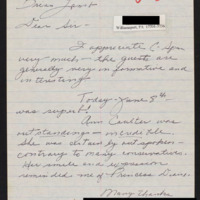 Press Fowt
Dear Sir -
I appreciate C-Span
very much - the guests are
generally very informative and
interesting.
Today - June 8th -
was superb!
Ann Coulter was
outstanding - incredible.
She was citing by out spoken -
contrary to many conservatives.
Her smile and expression
reminded me of Princess Diane.
Many Thanks